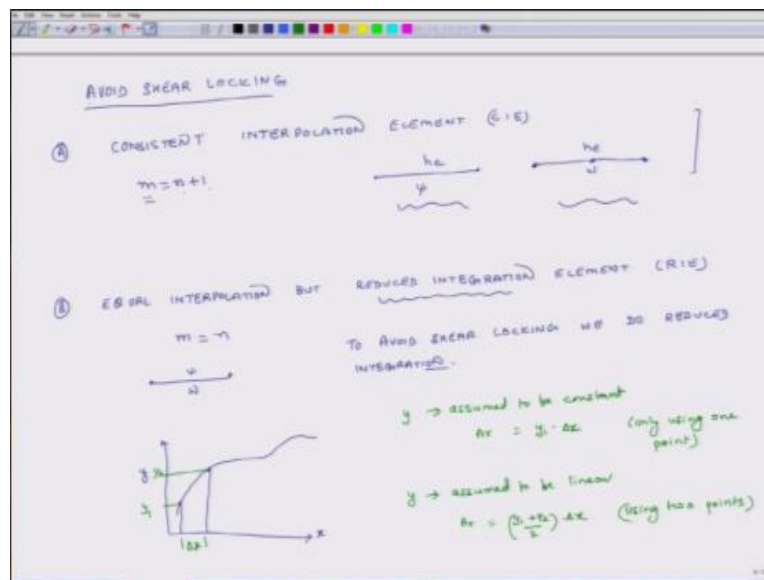 AVOID SHEAR LOCKING
Ⓐ CONSISTENT INTERPOLATION ELEMENT (CIE)
m = n+1
he
ψ
he
w
Ⓑ EQUAL INTERPOLATION BUT REDUCED INTEGRATION ELEMENT (RIE)
m = n
ψ
w
TO AVOID SHEAR LOCKING WE DO REDUCED
INTEGRATION.
y → assumed to be constant
Ar = y₁ · Δx (only using one
point)
y → assumed to be linear
Ar = (y₁ + y₂ / 2) · Δx (using two points)
y
y₁
|Δx|
x